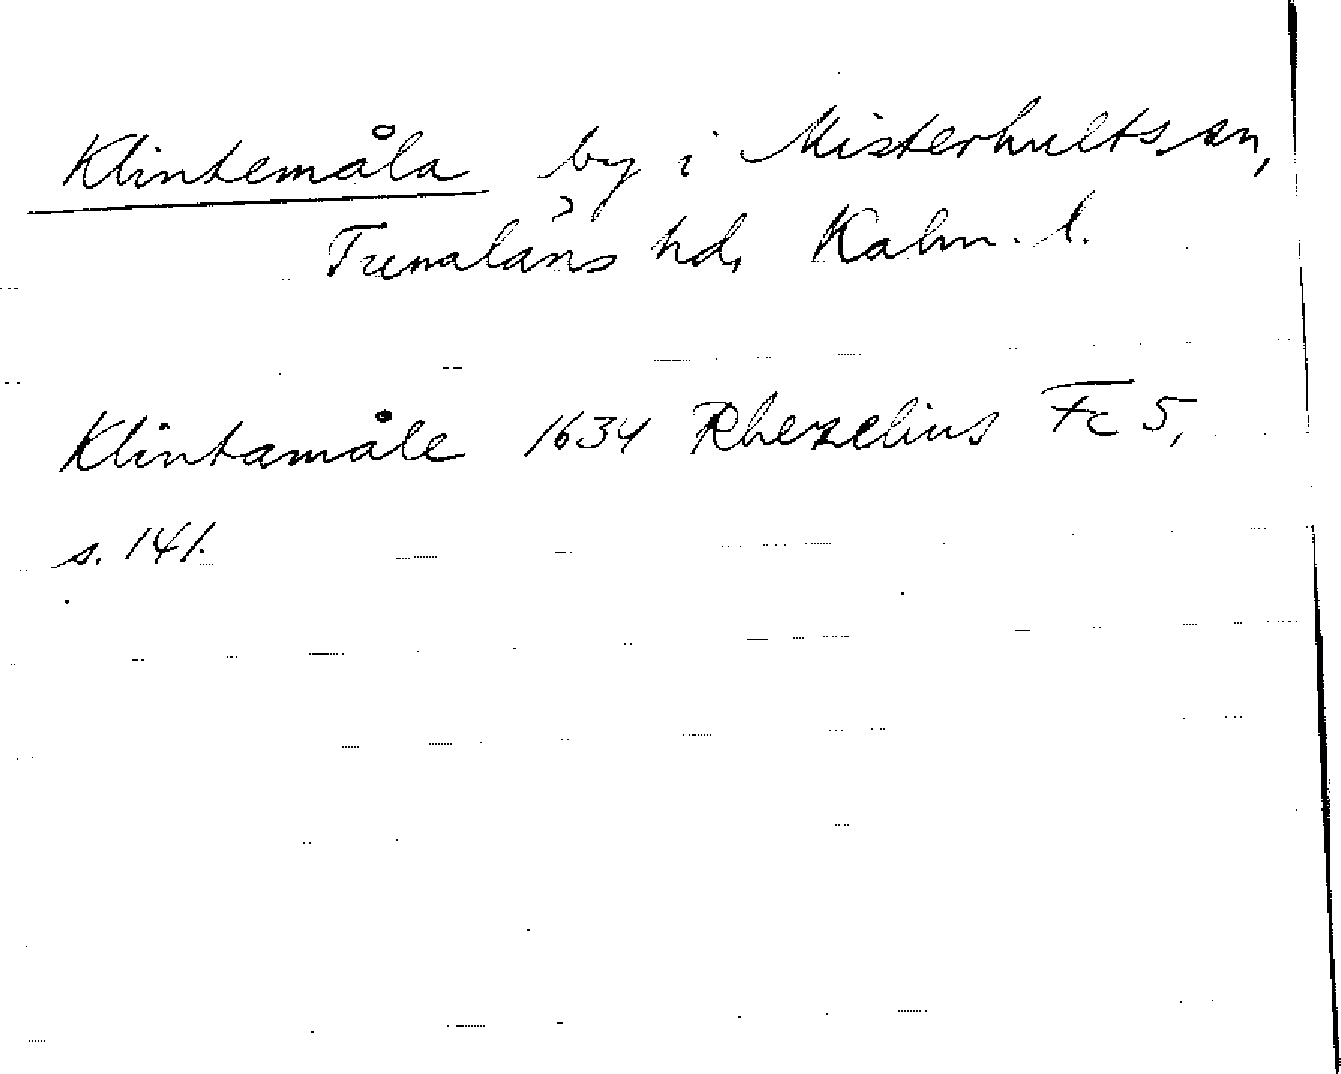 Klintemåla by i Misterhults sn,
Tunaläns hd, Kalm. l.
Klintamåle 1634 Rhezelius Fc 5,
s. 141.